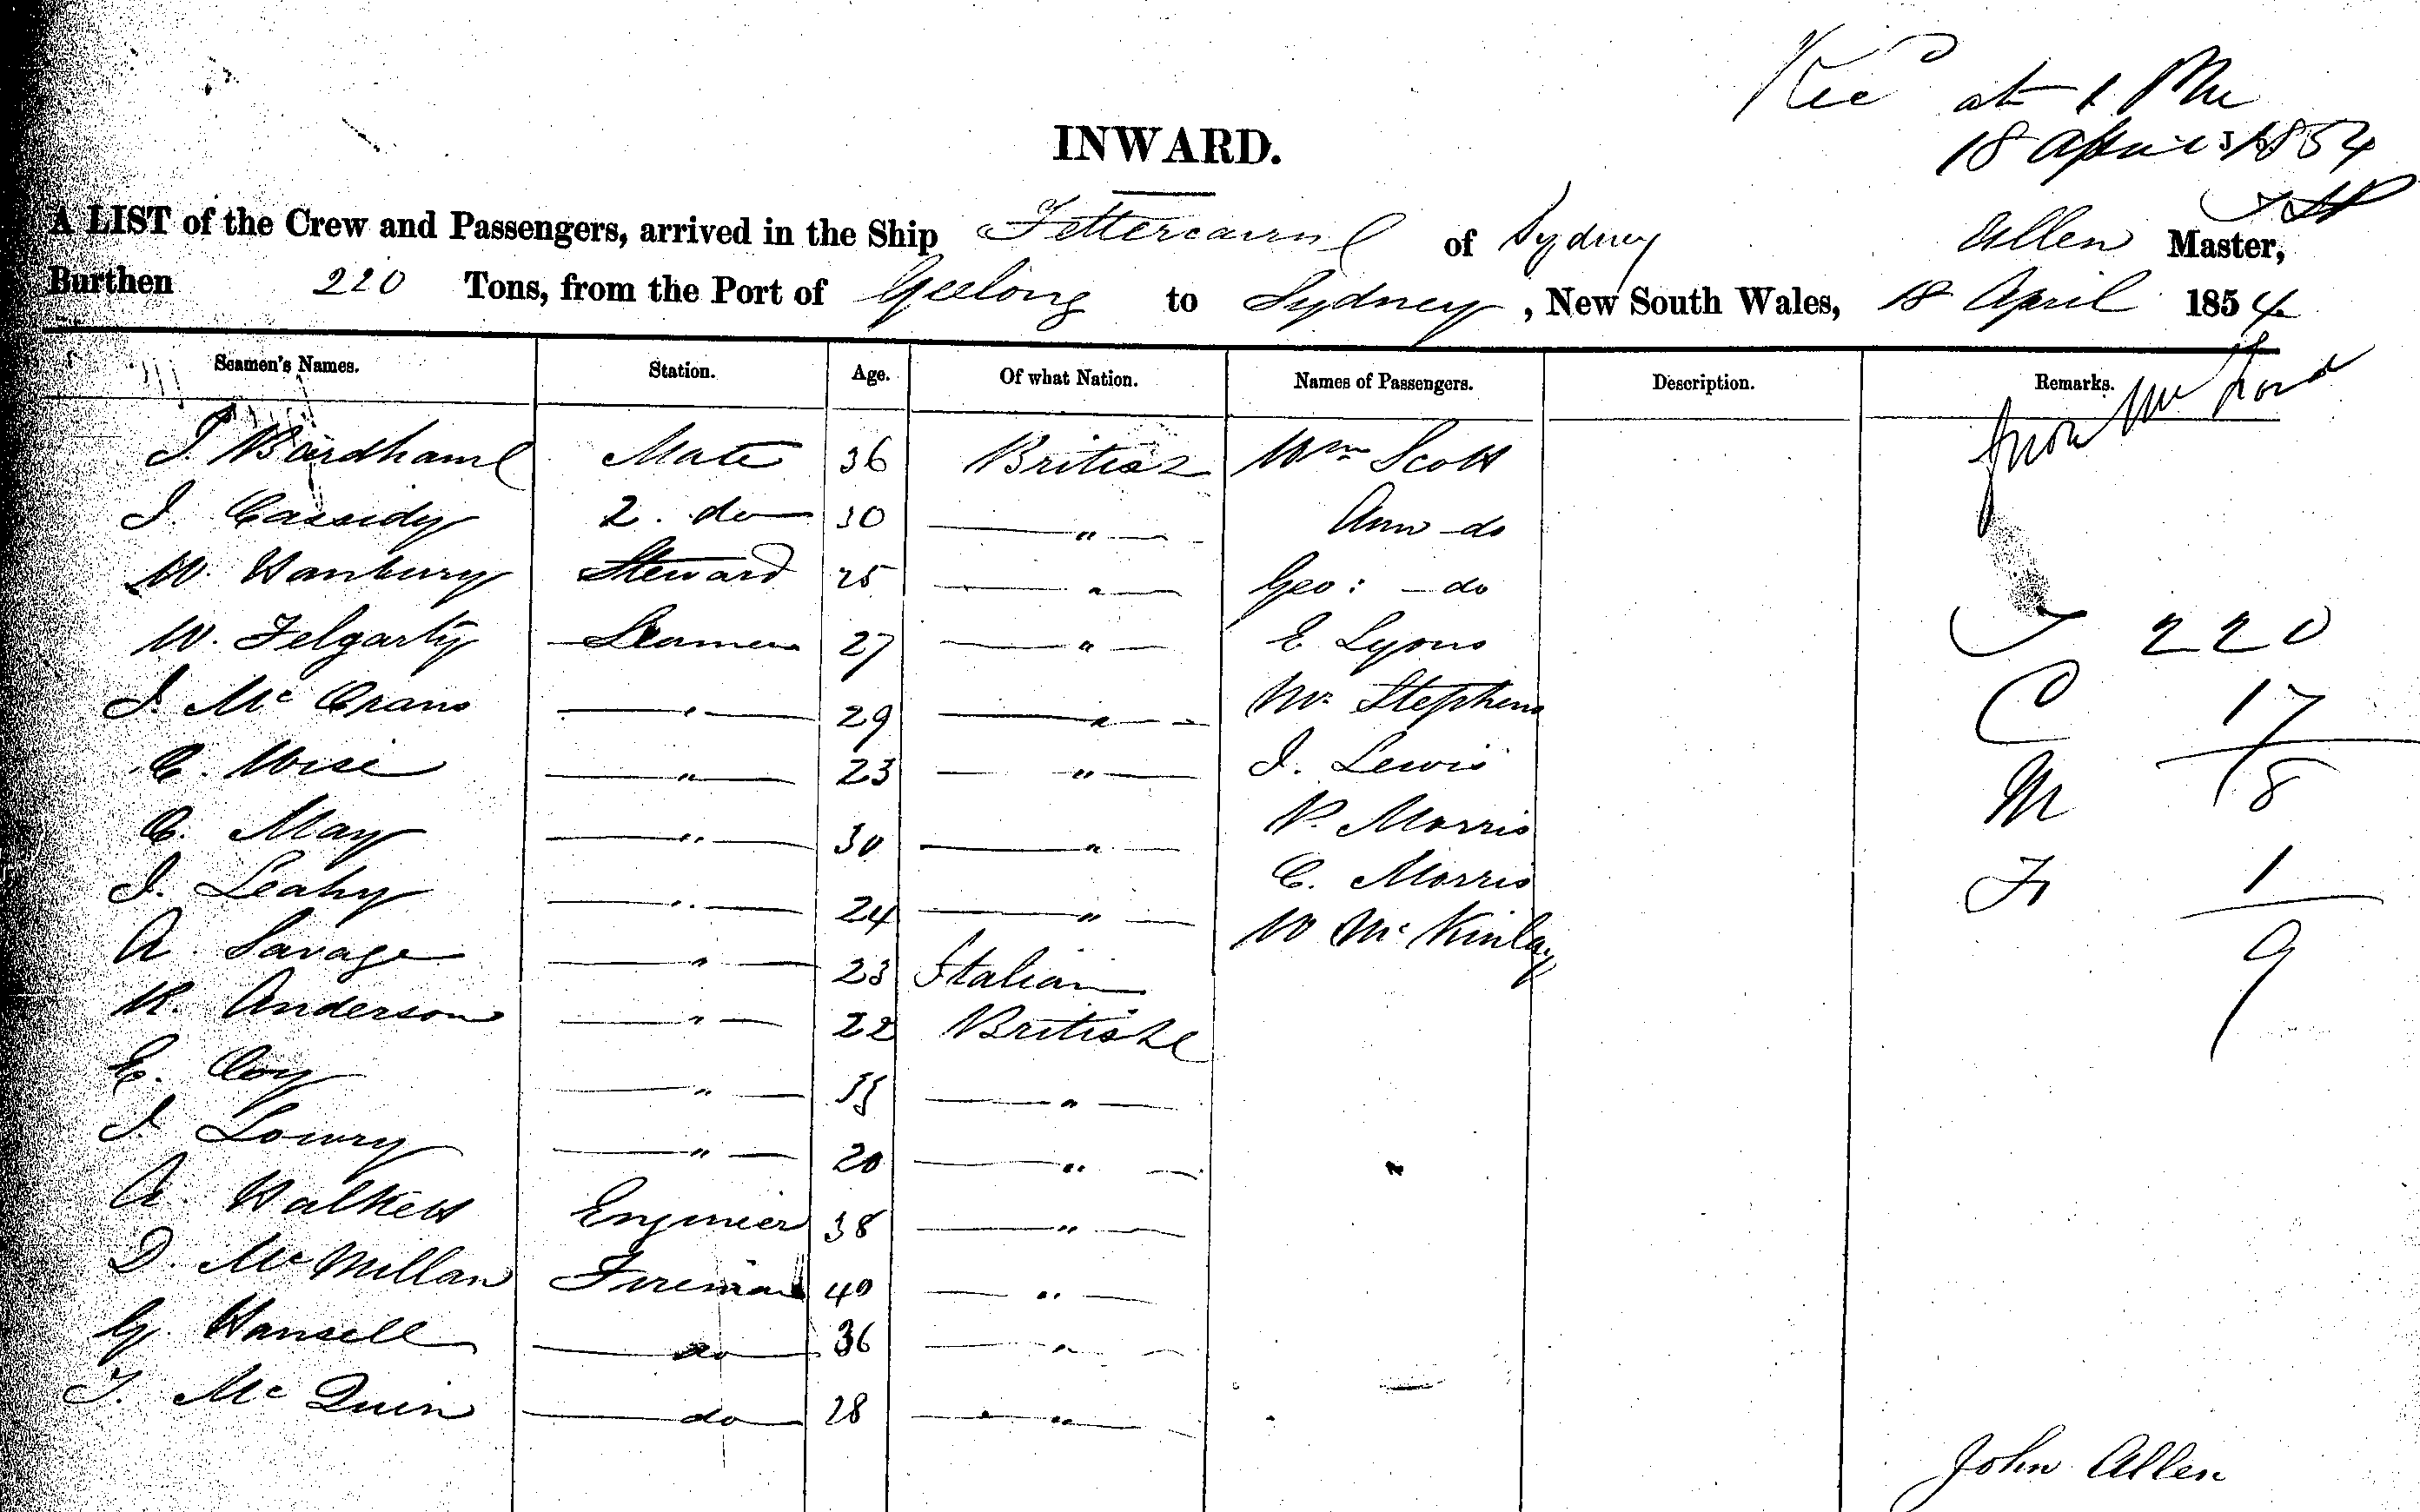 Rec^d at 1 PM
18 April 1854
INWARD.
A LIST of the Crew and Passengers, arrived in the Ship Fettercairn of Sydney Allen Master,
Burthen 220 Tons, from the Port of Geelong to Sydney, New South Wales, 18 April 1854
Seamen's Names. Station. Age. Of what Nation. Names of Passengers. Description. Remarks.
from Mr
J. Boardham Mate 36 British Wm Scott
J. Cassidy 2. do 30 " Ann do
W. Hanbury Steward 25 " Geo: do
W. Felgarty Seamen 27 " E Lyons
J. Mc Crans " 29 " W. Stephens
C. Wise " 23 " J. Lewis
C. May " 30 " P. Morris
J. Leahy " 24 " C. Morris
A. Savage " 23 Italian W McKinlay
R. Anderson " 22 British
E. Coy " 35 "
J. Lowry " 20 "
A. Halkett Engineer 38 "
D. McMillan Fireman 40 "
G. Hansell do 36 "
T. McQuin do 28 "
T 220
C 17
M 8
F 1
9
John Allen